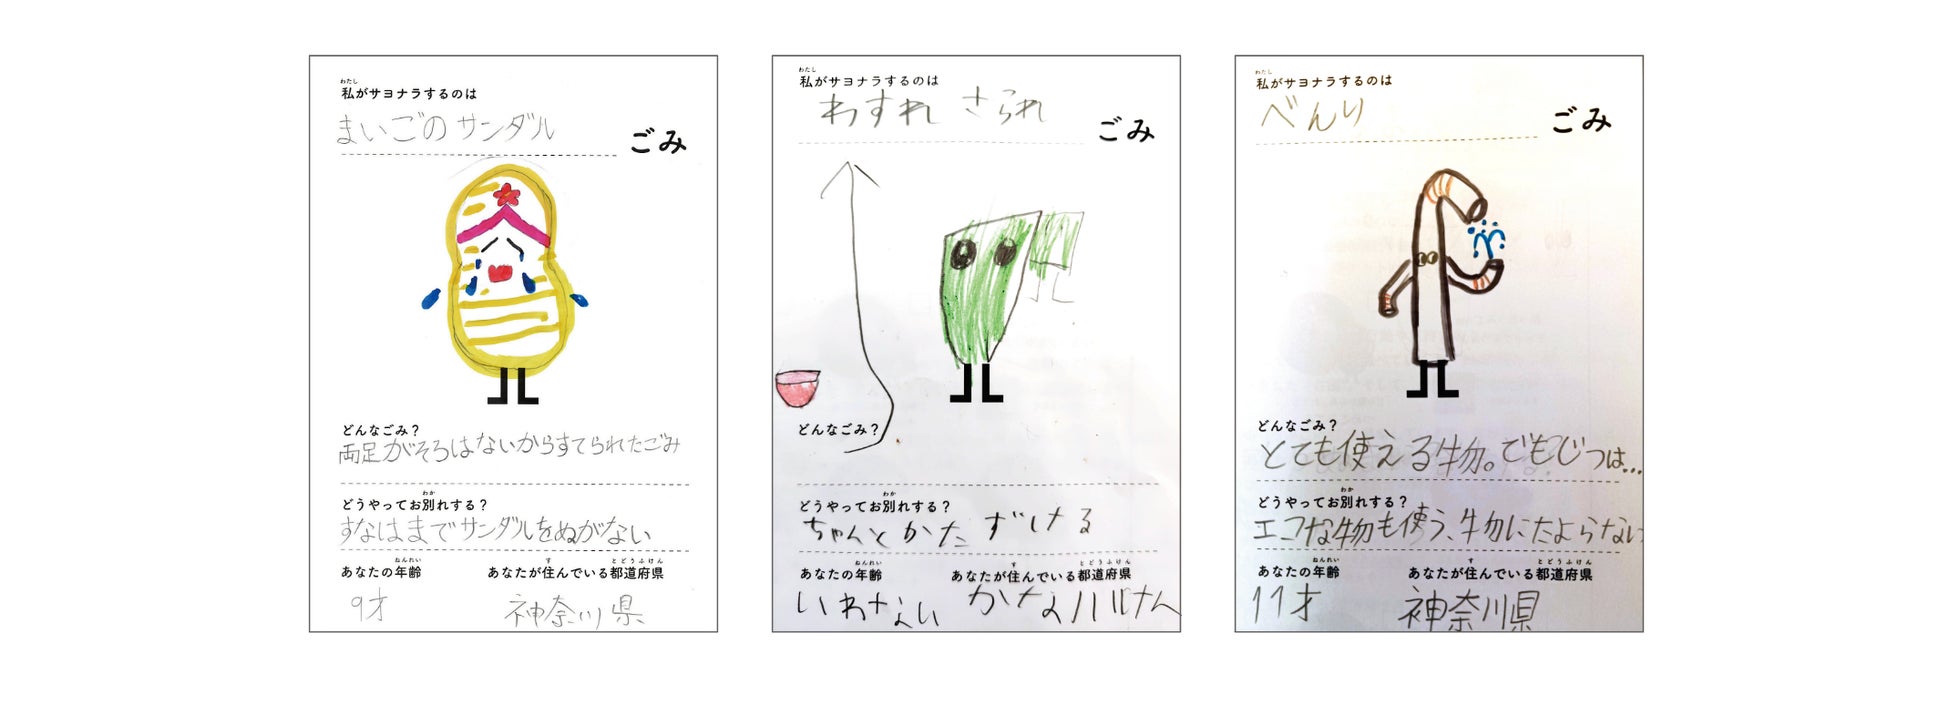 わたし
私がサヨナラするのは
まいごのサンダル
ごみ
どんなごみ？
両足がそろはないからすてられたごみ
わか
どうやってお別れする？
すなはまでサンダルをぬがない
ねんれい
あなたの年齢
す とどうふけん
あなたが住んでいる都道府県
9才
神奈川県
わたし
私がサヨナラするのは
わすれ さられ
ごみ
どんなごみ？
わか
どうやってお別れする？
ちゃんとかたずける
ねんれい
あなたの年齢
す とどうふけん
あなたが住んでいる都道府県
いわない
かながわけん
わたし
私がサヨナラするのは
べんり
ごみ
どんなごみ？
とても使える物。でもじつは…
わか
どうやってお別れする？
エコな物も使う、物にたよらない
ねんれい
あなたの年齢
す とどうふけん
あなたが住んでいる都道府県
11才
神奈川県